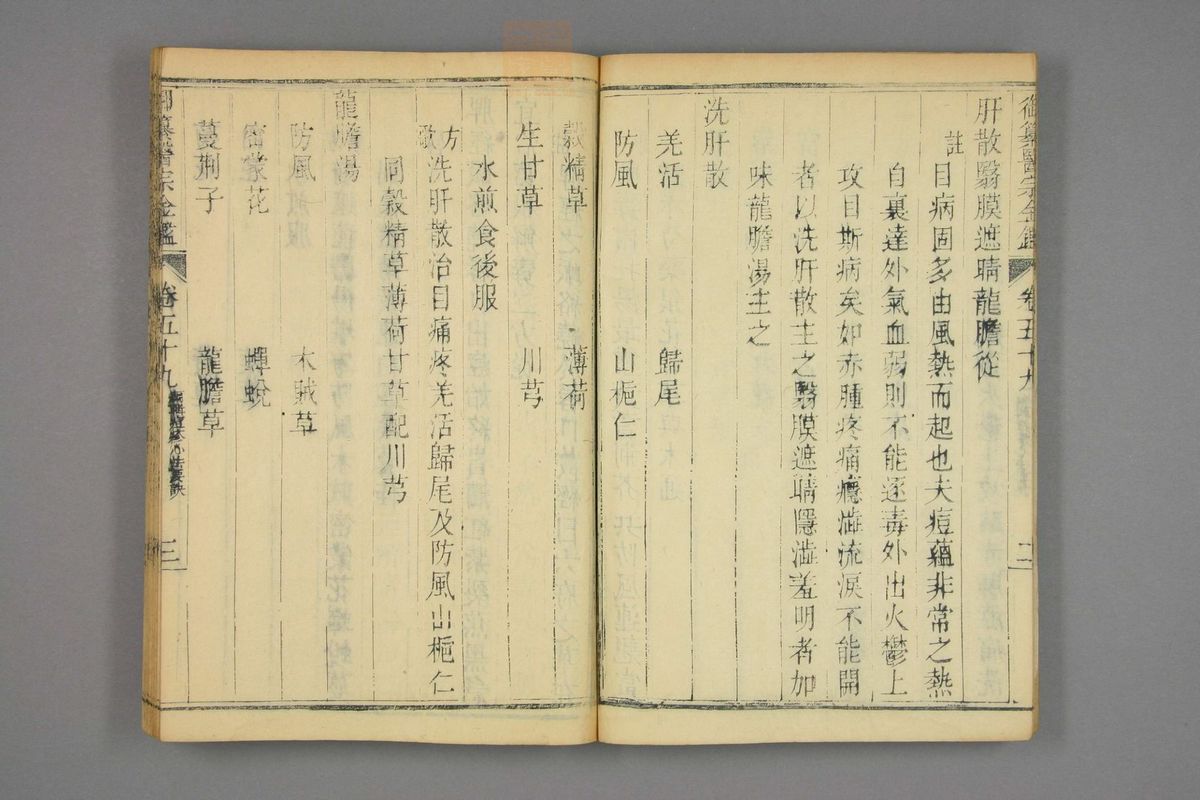 御纂醫宗金鑑 卷五十九 二
肝散翳膜遮睛龍膽從
註目病固多由風熱而起也夫痘蘊非常之熱
自裏達外氣血弱則不能逐毒外出火鬱上
攻目斯病矣如赤腫疼痛癮澁流淚不能開
者以洗肝散主之翳膜遮睛隱澁羞明者加
味龍膽湯主之
洗肝散
羌活 歸尾
防風 山梔仁
穀精草 薄荷
生甘草 川芎
水煎食後服
方歌洗肝散治目痛疼羌活歸尾及防風山梔仁
同穀精草薄荷甘草配川芎
龍膽湯
防風 木賊草
密蒙花 蟬蛻
蔓荊子 龍膽草
御纂醫宗金鑑 卷五十九 三